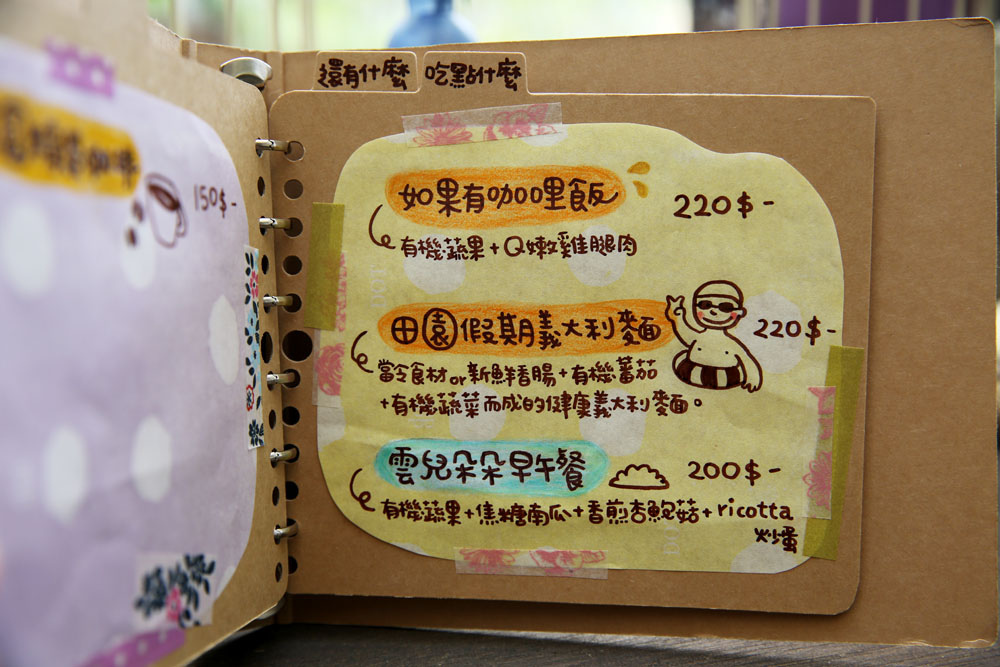 還有什麼
吃點什麼
150$-
如果有咖哩飯
220$-
有機蔬果+Q嫩雞腿肉
田園假期義大利麵
220$-
當令食材or新鮮香腸+有機蕃茄
+有機蔬菜而成的健康義大利麵。
雲兒朵朵早午餐
200$-
有機蔬果+焦糖南瓜+香煎杏鮑菇+ricotta
炒蛋